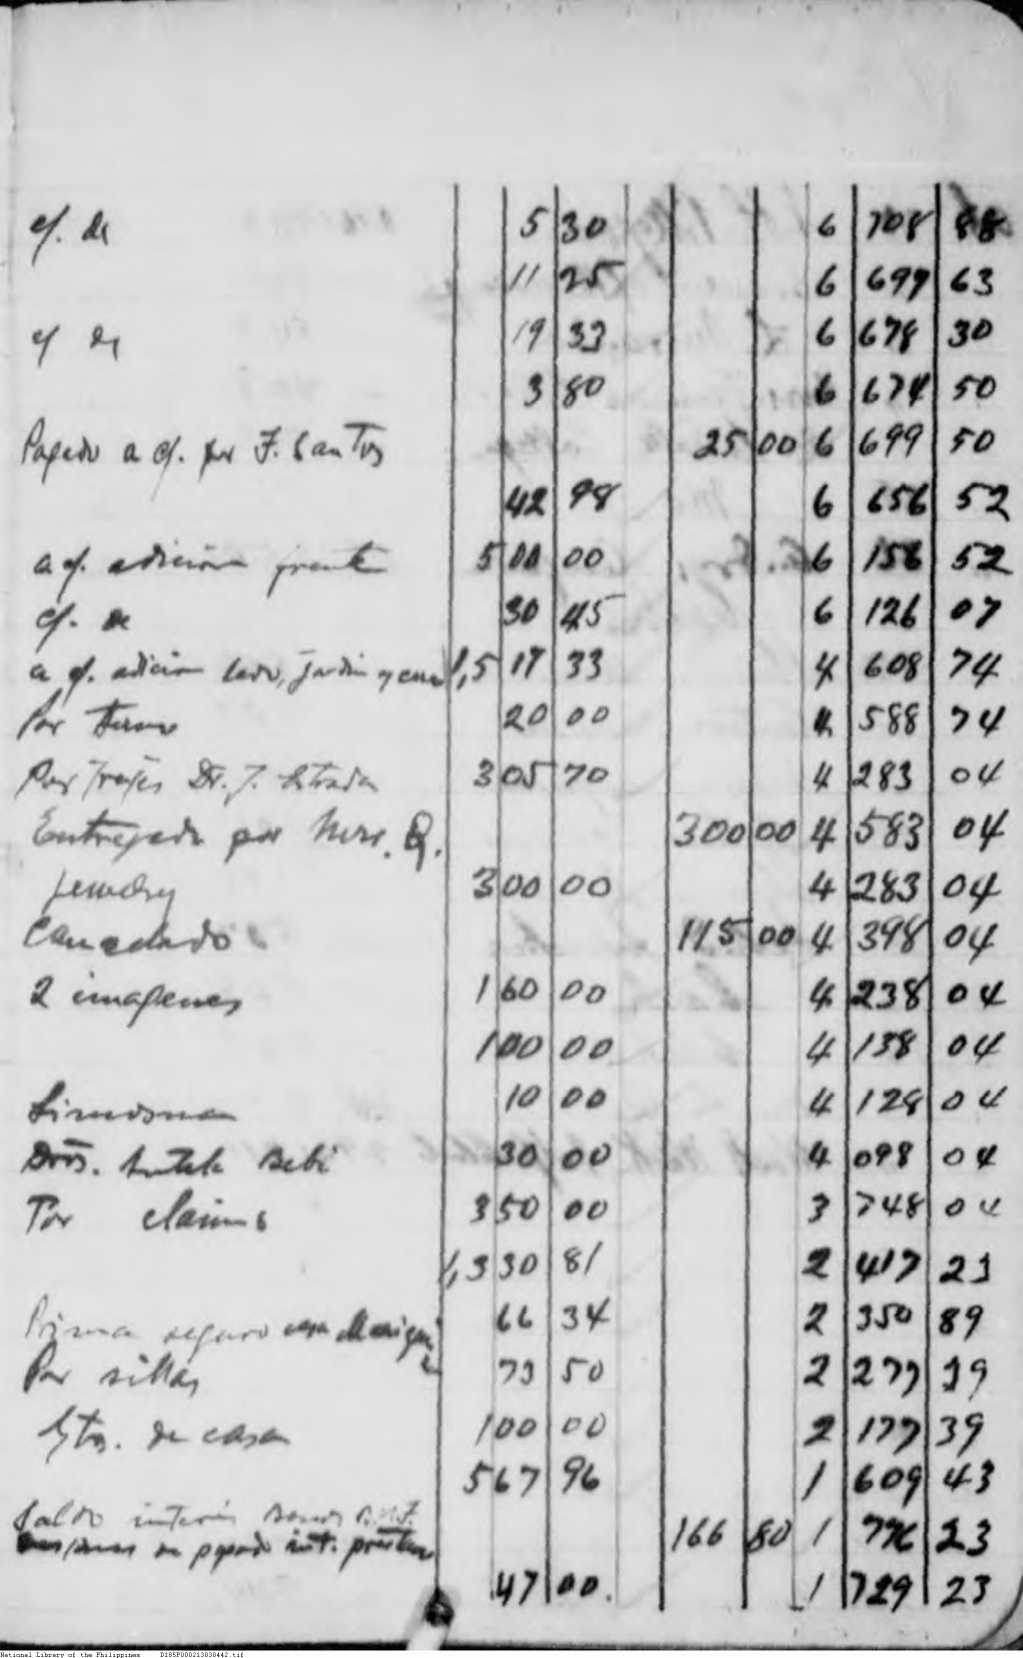 c/. de 5 30 6 708 88
11 25 6 697 63
c/ de 19 33 6 678 30
3 80 6 674 50
Pagado a c/. por F. Santos 25 00 6 699 50
42 98 6 656 52
a c/. adicion frente 500 00 6 156 52
c/. de 30 45 6 126 07
a c/. adicion lado, jardin y 1,517 33 4 608 74
Por 20 00 4 588 74
Por trajes Dr. J. Estrada 305 70 4 283 04
Entregado por Mrs. Q. 300 00 4 583 04
Jewelry 300 00 4 283 04
Cancelado 115 00 4 398 04
2 imagenes 160 00 4 238 04
100 00 4 138 04
Limosna 10 00 4 128 04
30 00 4 098 04
Por claims 350 00 3 748 04
1,330 81 2 417 23
Prima seguro casa 66 34 2 350 89
Por sillas 73 50 2 277 39
Gtos. de casa 100 00 2 177 39
567 96 1 609 43
Saldo interes
pagado int. 166 80 1 776 23
47 00. 1 729 23
National Library of the Philippines D185P000213830442.tif